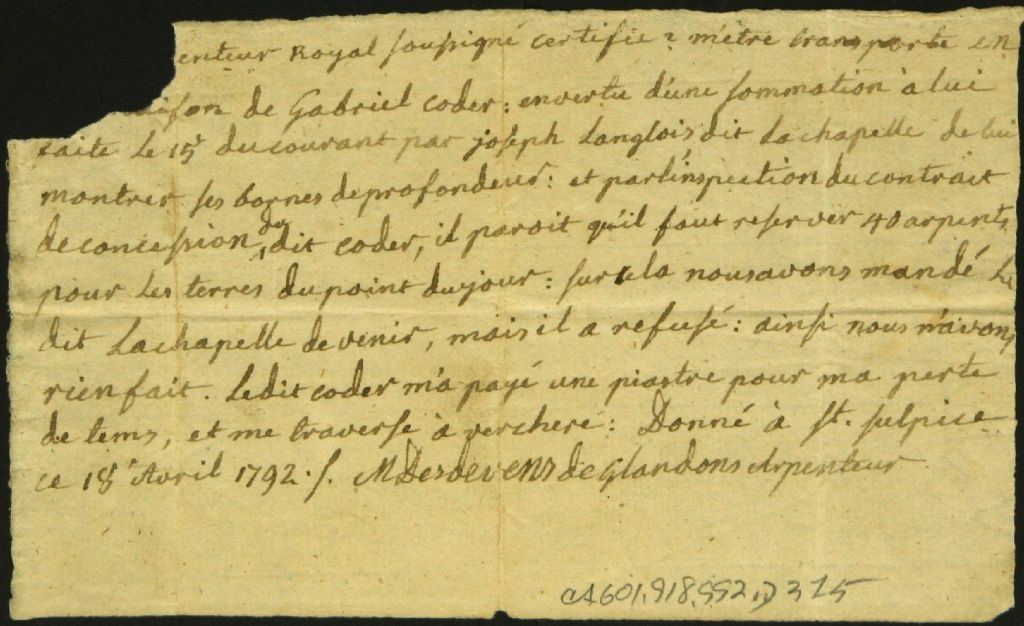 enteur Royal soussigné certifie : m'être transporté en
aison de Gabriel coder : en vertu d'une sommation à lui
faite Le 15 du courant par joseph Langlois dit Lachapelle de lui
montrer ses bornes de profondeur : et par l'inspection du contrait
de concession du dit coder, il paroit qu'il faut reserver 40 arpents
pour les terres du point du jour : sur cela nous avons mandé Le
dit Lachapelle de venir, mais il a refusé : ainsi nous n'avons
rien fait. Ledit coder m'a payé une piastre pour ma perte
de tems, et me traverse à verchere : Donné à St. sulpice
ce 18 Avril 1792 . /. M Desdevens de Glandons Arpenteur
CA601,S18,SS2,D315